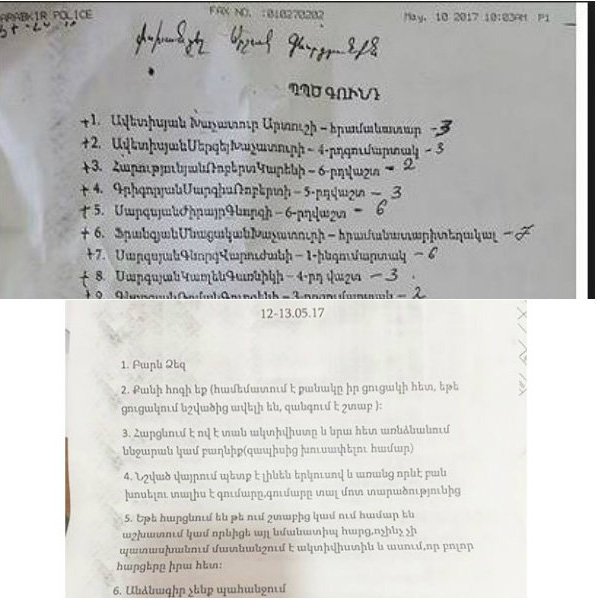 ARABKIR POLICE FAX NO. :010270202 May. 10 2017 10:03AM P1
ՊՊԾ ԳՈՒՆԴ
+1. Ավետիսյան Խաչատուր Արտուշի – հրամանատար – 3
+2. ԱվետիսյանՍերգեյԽաչատուրի – 4-րդգումարտակ – 3
+3. ՀարությունյանՌոբերտԿարենի – 6-րդվաշտ – 2
+ 4. ԳրիգորյանՍարգիսՌոբերտի – 5-րդվաշտ – 3
+ 5. ՍարգսյանԺիրայրԳևորգի – 6-րդվաշտ – 6
+ 6. ՖրանգյանՄնացականԽաչատուրի – հրամանատարիտեղակալ – 7
+7. ՍարգսյանԳևորգՎարուժանի – 1-ինգումարտակ – 6
+ 8. ՍարգսյանԿարենԳառնիկի – 4-րդ վաշտ – 3
+ 9. 3-րդգումարտակ – 2
12-13.05.17
1. Բարև Ձեզ
2. Քանի հոգի եք (համեմատում է քանակը իր ցուցակի հետ, եթե
ցուցակում նշվածից ավելի են, զանգում է շտաբ ):
3. Հարցնում է ով է տան ակտիվիստը և նրա հետ առանձնանում
ննջարան կամ բաղնիք(զապիսից խուսափելու համար)
4. Նշված վայրում պետք է լինեն երկուսով և առանց որևէ բան
խոսելու տալիս է գումարը,գումարը տալ մոտ տարածությունից
5. Եթե հարցնում են թե ում շտաբից կամ ում համար են
աշխատում կամ որևիցե այլ նմանատիպ հարց,ոչինչ չի
պատասխանում մատնանշում է ակտիվիստին և ասում,որ բոլոր
հարցերը իրա հետ:
6. Անձնագիր չենք պահանջում